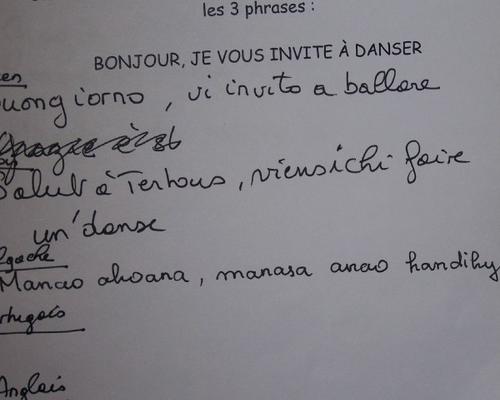 les 3 phrases :
BONJOUR, JE VOUS INVITE À DANSER
uongiorno, vi invito a ballare
Salut à Tertous, viensichi faire
un'danse
lgache
Manao ahoana, manasa anao handihy
rtugais
Anglais